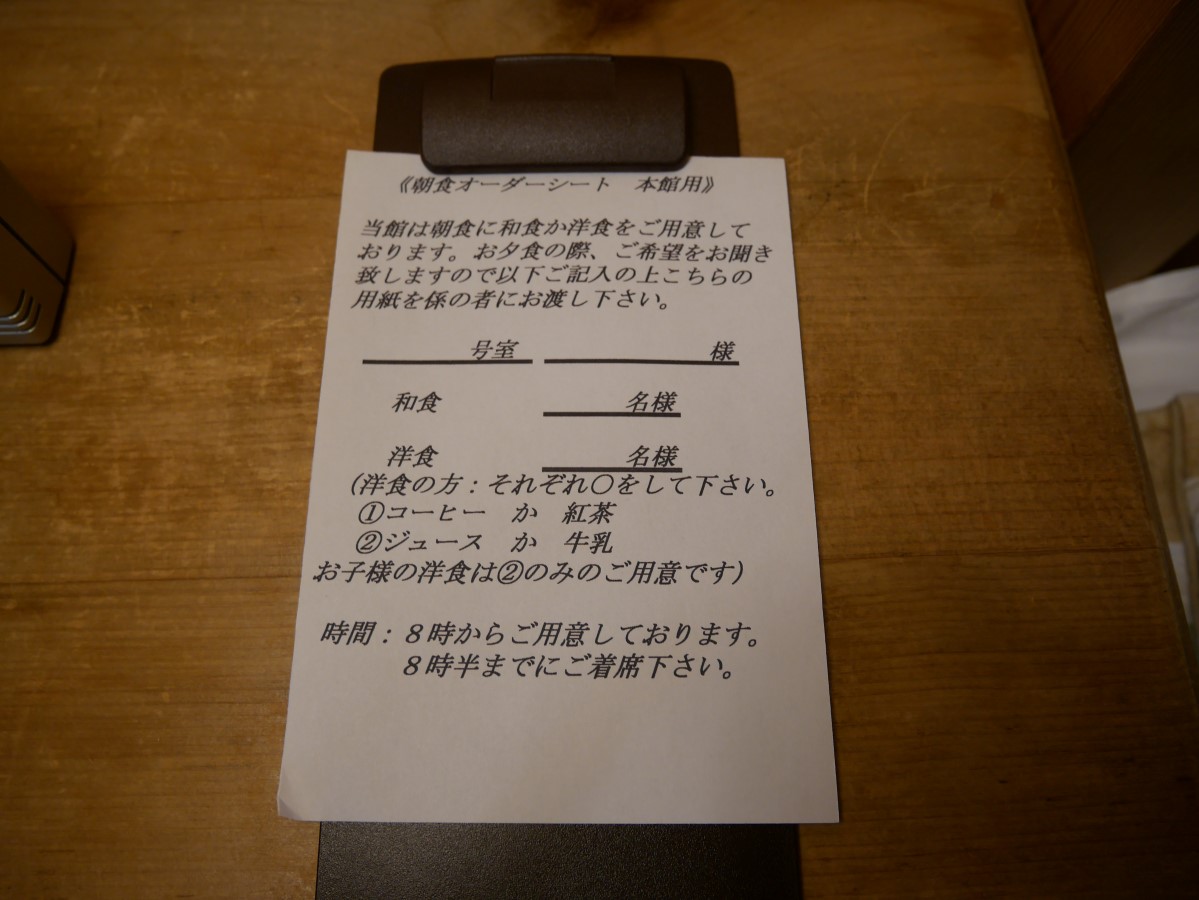 《朝食オーダーシート　本館用》
当館は朝食に和食か洋食をご用意して
おります。お夕食の際、ご希望をお聞き
致しますので以下ご記入の上こちらの
用紙を係の者にお渡し下さい。
号室　様
和食　名様
洋食　名様
（洋食の方：それぞれ〇をして下さい。
①コーヒー　か　紅茶
②ジュース　か　牛乳
お子様の洋食は②のみのご用意です）
時間：８時からご用意しております。
８時半までにご着席下さい。